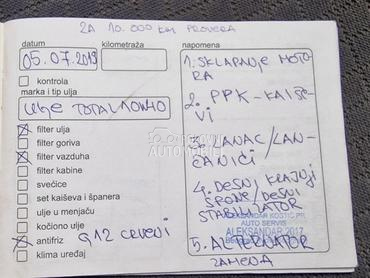 ZA 10.000 km PROVERA
datum
kilometraža
napomena
05.07.2019
kontrola
marka i tip ulja
ULJE TOTAL 10W40
filter ulja
filter goriva
filter vazduha
filter kabine
svećice
set kaiševa i španera
ulje u menjaču
kočiono ulje
antifriz G12 CRVENI
klima uređaj
1. SKLAPANJE MOTO
RA
2. PPK-KAIŠE
VI
3. LANAC/LAN-
ČANICI
4. DESNI KRAJNJI
SPONE/DESNI
STABILIZATOR
ALEKSANDAR KOSTIĆ PR
AUTO SERVIS
ALEKSANDAR 2017
5. ALTERNATOR
ZAMENA